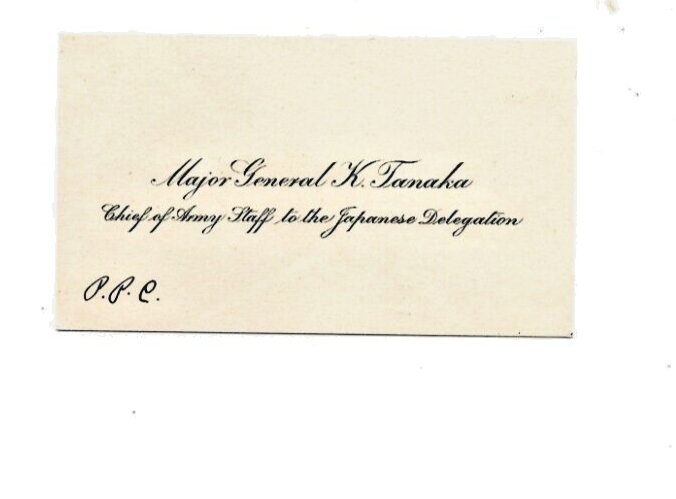 Major General K. Tanaka
Chief of Army Staff to the Japanese Delegation
P. P. C.